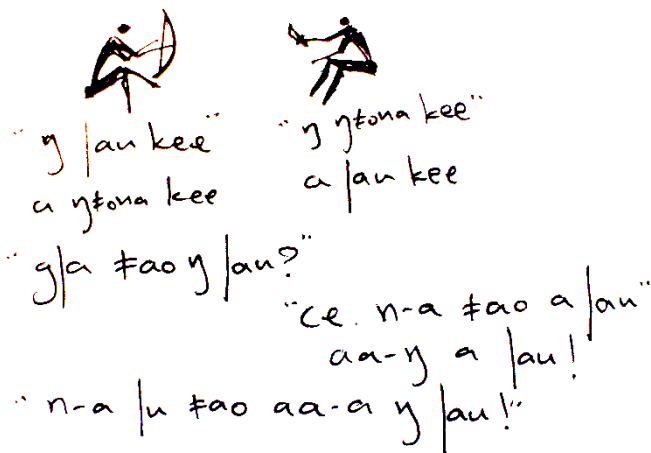 "ŋ ǀau kee"
a ŋǂona kee
"ŋ ŋǂona kee"
a ǀau kee
"gǀa ǂao ŋ ǀau?"
"ce. n-a ǂao a ǀau"
aa-ŋ a ǀau!
"n-a ǀu ǂao aa-a ŋ ǀau!"